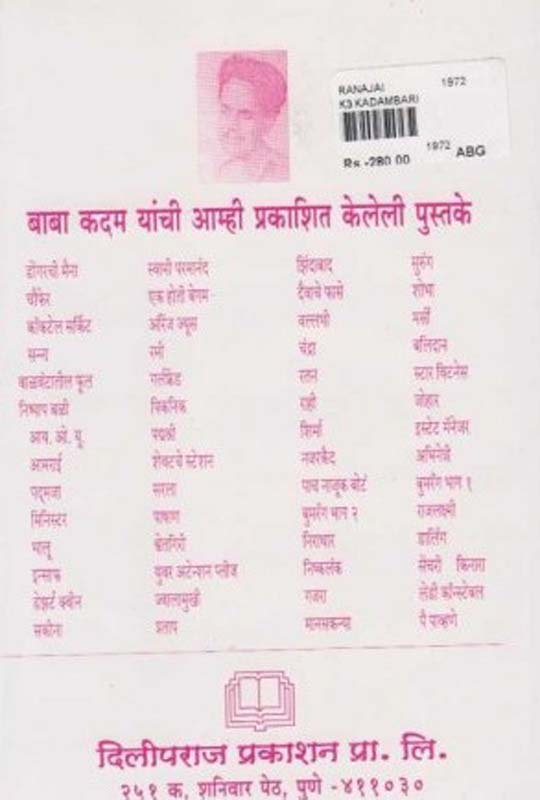 RANAJAI 1972
K3 KADAMBARI
1972 ABG
Rs.-280.00
बाबा कदम यांची आम्ही प्रकाशित केलेली पुस्तके
डोंगरची मैना स्वामी परमानंद झिंदाबाद सुरुंग
चौफेर एक होती बेगम दैवाचे फासे शोभा
कॉकटेल सर्किट ऑरेंज ज्यूस वल्लभी मर्सी
चंद्रा बलिदान
वाळवंटातील फूल गर्लफ्रेंड रतन स्टार विटनेस
निष्पाप बळी पिकनिक राही जोहार
आय. ओ. यू. पद्मश्री शिर्मा इस्टेट मॅनेजर
आमराई शेवटचे स्टेशन नजरकैद अभिनेत्री
पद्मजा सरला पाच नाजूक बोटं बुमरँग भाग १
मिनिस्टर पाषाण बुमरँग भाग २ राजलक्ष्मी
भालू श्वेतगिरी निराधार डार्लिंग
इन्साफ युवर अटेन्शन प्लीज निष्कलंक सेंचरी किनारा
डेझर्ट क्वीन ज्वालामुखी गजरा लेडी कॉन्स्टेबल
सकीना प्रताप मानसकन्या पै पाव्हणे
दिलीपराज प्रकाशन प्रा. लि.
२५१ क, शनिवार पेठ, पुणे -४११०३०